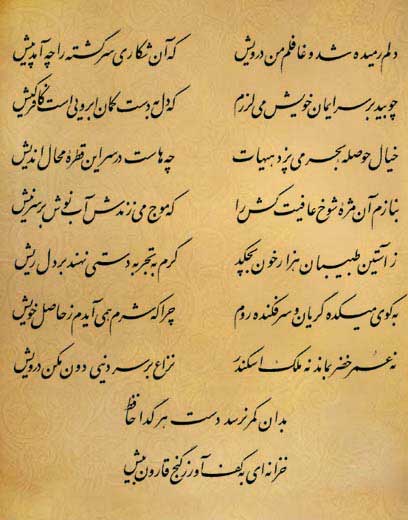 دلم رمیده شد و غافلم من درویش که آن شکاری سرگشته را چه آمد پیش
چو بید بر سر ایمان خویش می لرزم که دل به دست کمان ابرویی است کافر کیش
خیال حوصله بحر می پزد هیهات چه هاست در سر این قطره محال اندیش
بنازم آن مژه شوخ عافیت کش را که موج می زندش آب نوش بر سر نیش
ز آستین طبیبان هزار خون بچکد گرم به تجربه دستی نهند بر دل ریش
به کوی میکده گریان و سرفکنده روم چرا که شرم همی آیدم ز حاصل خویش
نه عمر خضر بماند نه ملک اسکندر نزاع بر سر دنیی دون مکن درویش
بدان کمر نرسد دست هر گدا حافظ
خزانه ای به کف آور ز گنج قارون بیش